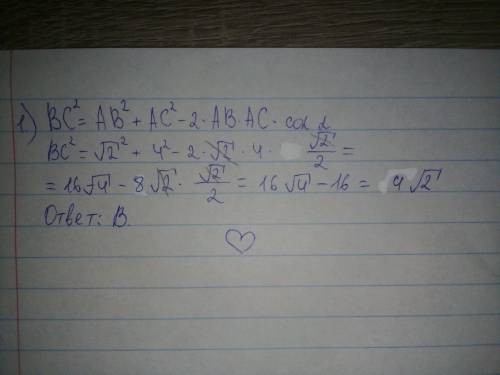 1) BC² = AB² + AC² - 2 · AB · AC · cos α
BC² = √2² + 4² - 2 · √2 · 4 · √2/2 =
= 16√4 - 8√2 · √2/2 = 16√4 - 16 = 4√2
Ответ: B.